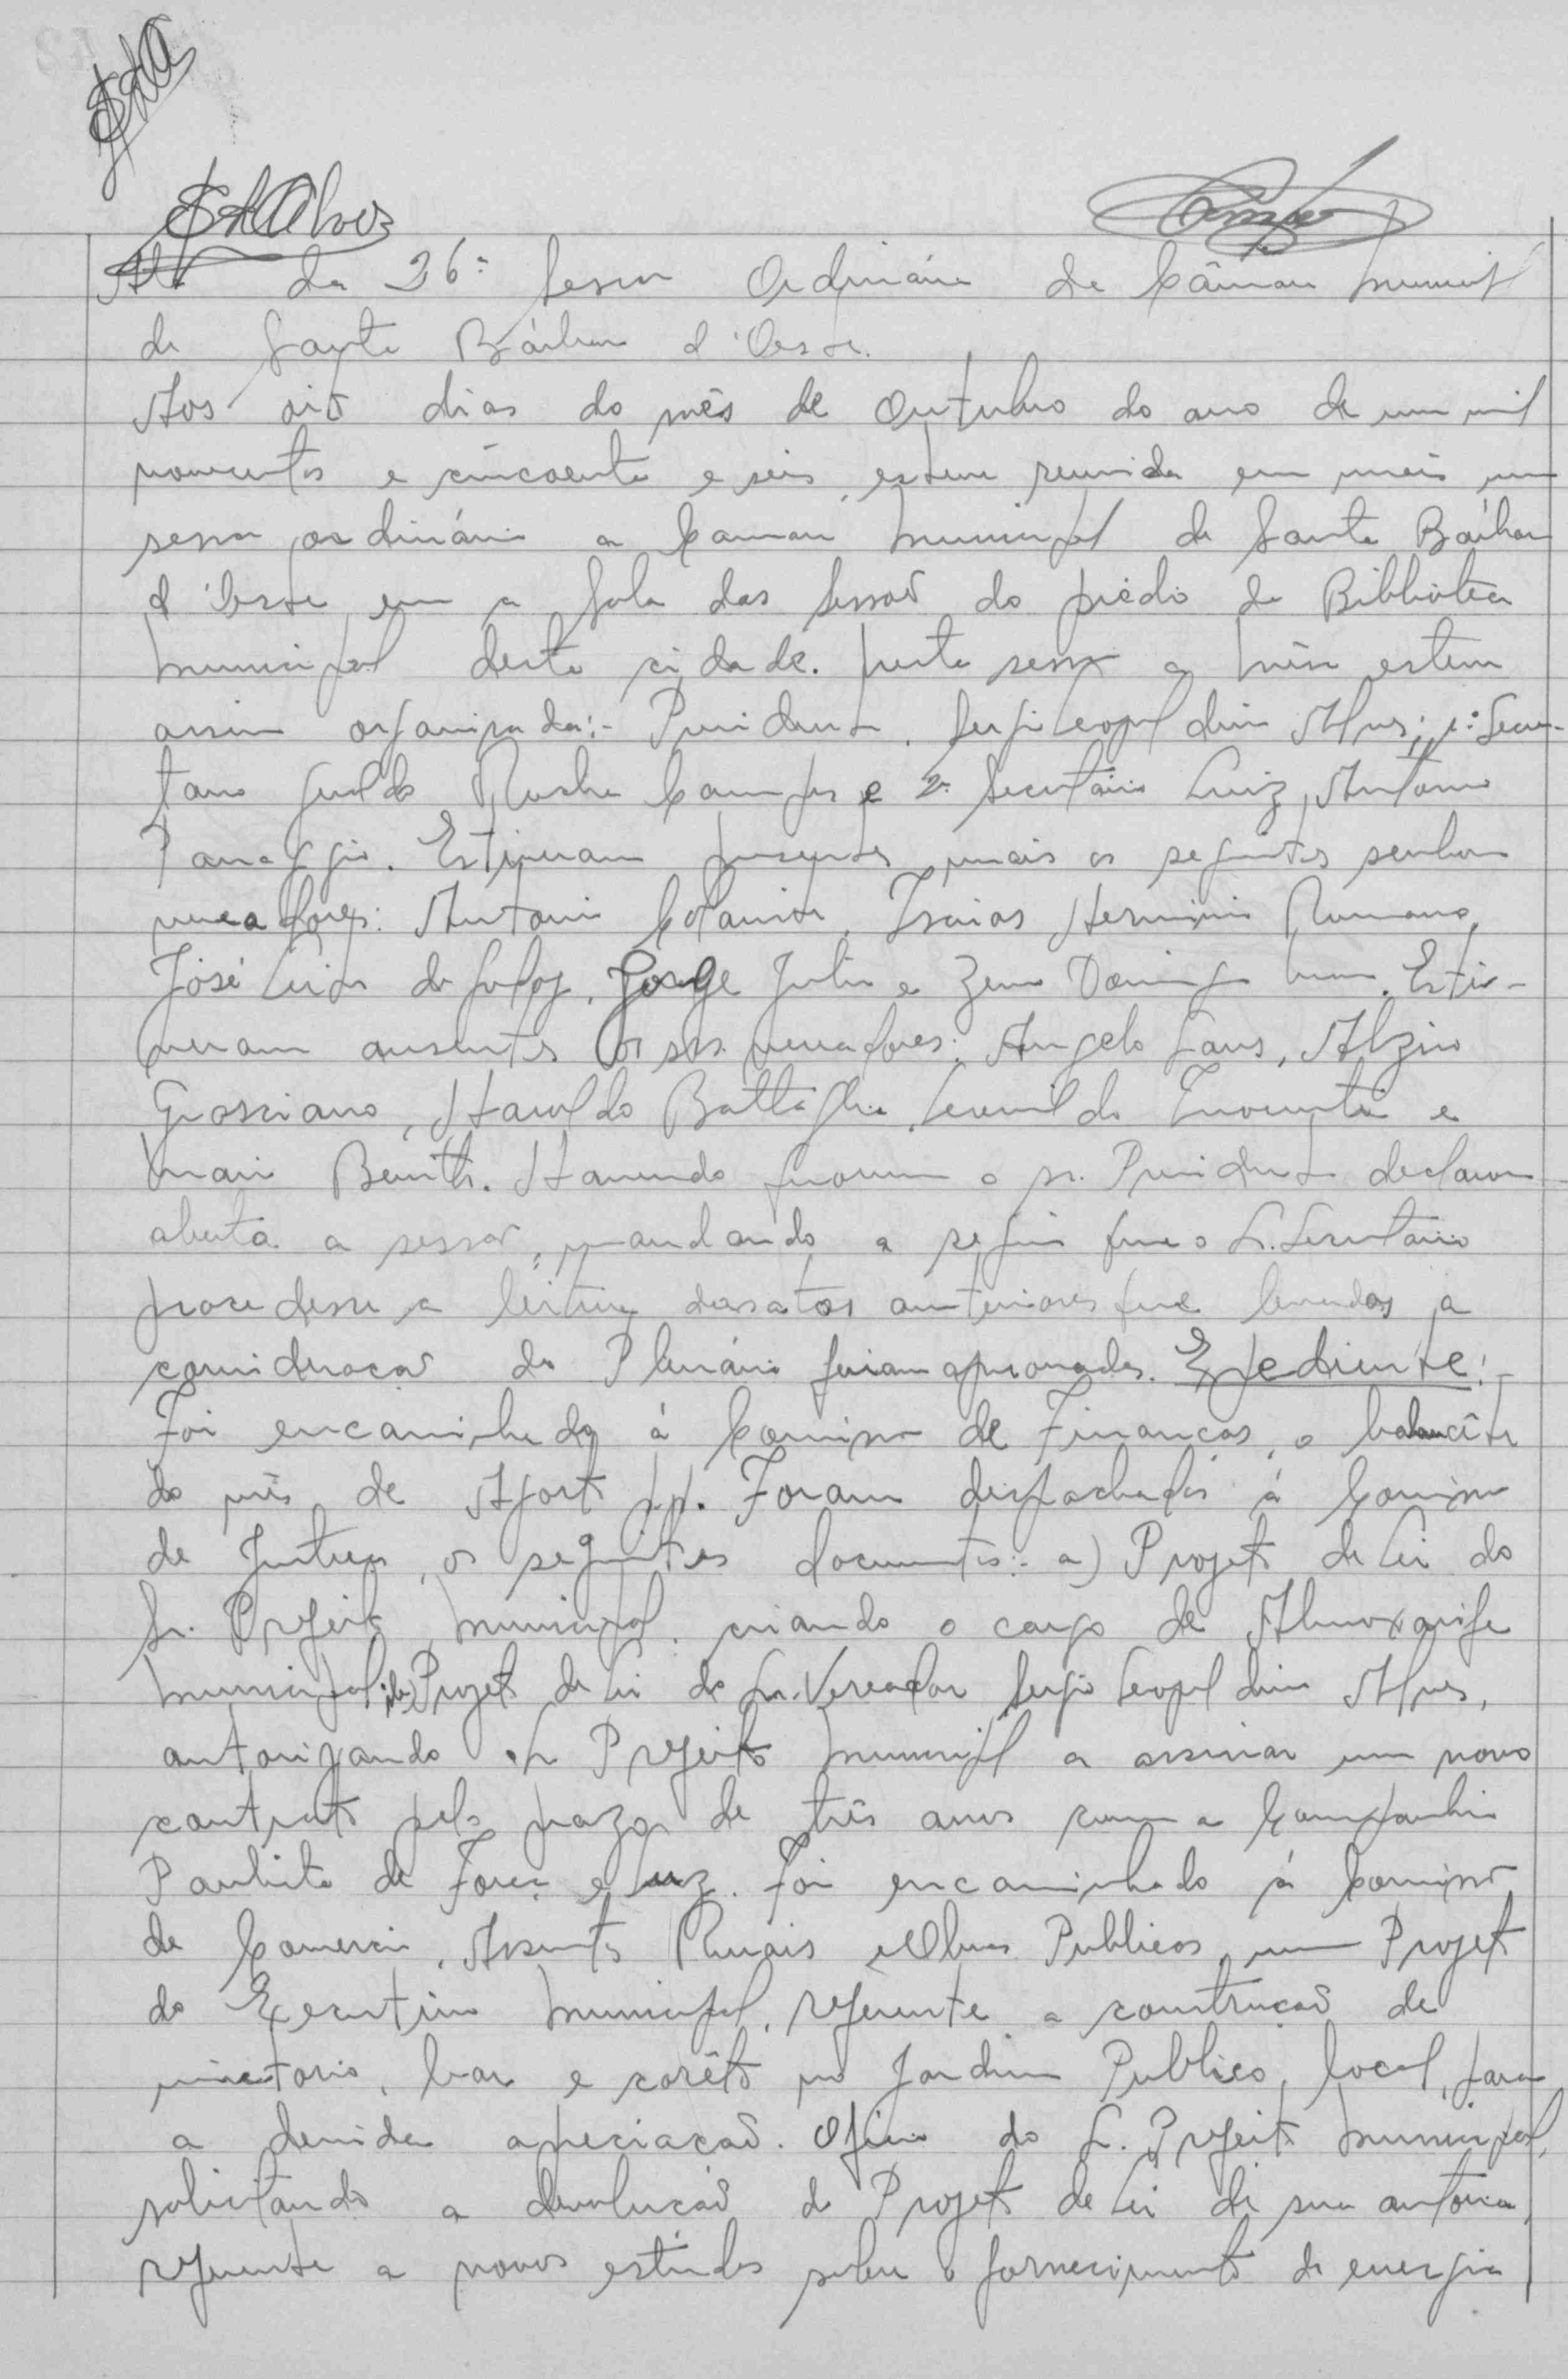 SLAlves
Ata da 36ª Sessão Ordinária da Câmara Municipal
de Santa Bárbara d'Oeste.
Aos oito dias do mês de Outubro do ano de um mil
novecentos e cincoenta e seis, esteve reunida em mais uma
sessão ordinária a Camara Municipal de Santa Bárbara
d'Oeste em a Sala das Sessões do prédio da Biblioteca
Municipal desta cidade. Nesta sessão a Mêsa esteve
assim organizada:- Presidente, Sergio Leopoldino Alves; 1º Secre-
tario Geraldo Rocha Campos e 2º Secretário Luiz Antonio
Panaggio. Estiveram presentes mais os seguintes senhores
vereadores: Antonio, Isaias Herminio Romano,
José Luiz de Godoy, Jorge Julio e Zeno Domingos Maia. Esti-
veram ausentes os srs. vereadores: Angelo Sans, Alziro
Grosciano, Haroldo Battaglia, Leonildo Inocente e
Mario Benith. Havendo quorum o sr. Presidente declarou
aberta a sessão, mandando a seguir que o Sr. Secretário
procedesse a leitura das atas anteriores que levadas a
consideração do Plenário foram aprovadas. Expediente:-
Foi encaminhado á Comissão de Finanças, o balancête
do mês de Agosto p.p. Foram despachados á Comissão
de Justiça, os seguintes documentos:- a) Projeto de Lei do
Sr. Prefeito Municipal, criando o cargo de Almoxarife
Municipal; b) Projeto de Lei do Sr. Vereador Sergio Leopoldino Alves,
autorizando o Sr Prefeito Municipal a assinar um novo
contrato pelo prazo de três anos com a Companhia
Paulista de Força e Luz. Foi encaminhado á Comissão
de Comercio, Assuntos Rurais e Obras Publicas, um Projeto
do Executivo Municipal, referente a construção de
mictorio, bar e corêto no Jardim Publico, local, para
a devida apreciação. Oficio do Sr. Prefeito Municipal,
solicitando a devolução do Projeto de Lei de sua autoria,
referente a novos estudos sobre o fornecimento de energia